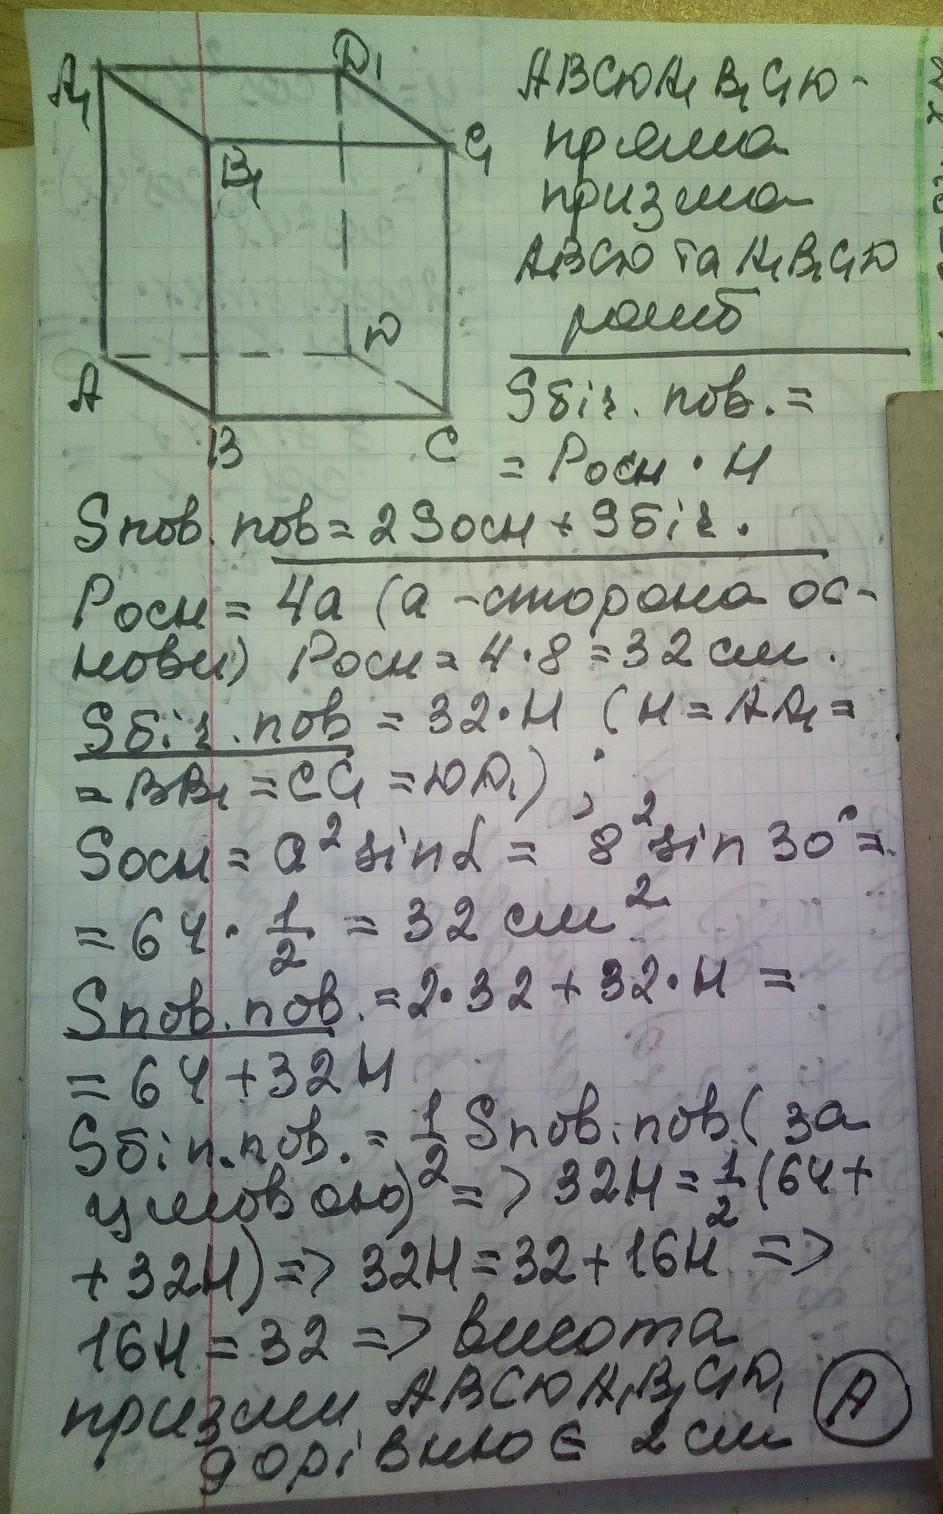 A₁
D₁
B₁
C₁
A
D
B
C
ABCDA₁B₁C₁D -
пряма
призма
ABCD та A₁B₁C₁D
ромб
Sбіч. пов. =
= Pосн · H
Sпов. пов = 2Sосн + Sбіч.
Pосн = 4a (a - сторона ос-
нови) Pосн = 4·8 = 32 см.
Sбіч. пов = 32·H (H = AA₁ =
= BB₁ = CC₁ = DD₁) ;
Sосн = a² sin α = 8² sin 30° =
= 64 · 1/2 = 32 см²
Sпов. пов. = 2·32 + 32·H =
= 64 + 32H
Sбіп.пов. = 1/2 Sпов. пов. (за
умовою) => 32H = 1/2 (64 +
+ 32H) => 32H = 32 + 16H =>
16H = 32 => висота
призми ABCDA₁B₁C₁D₁
дорівнює 2 см
A